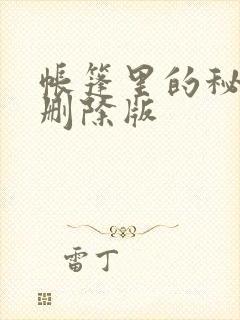 帐篷里的秘
删除版
雷丁